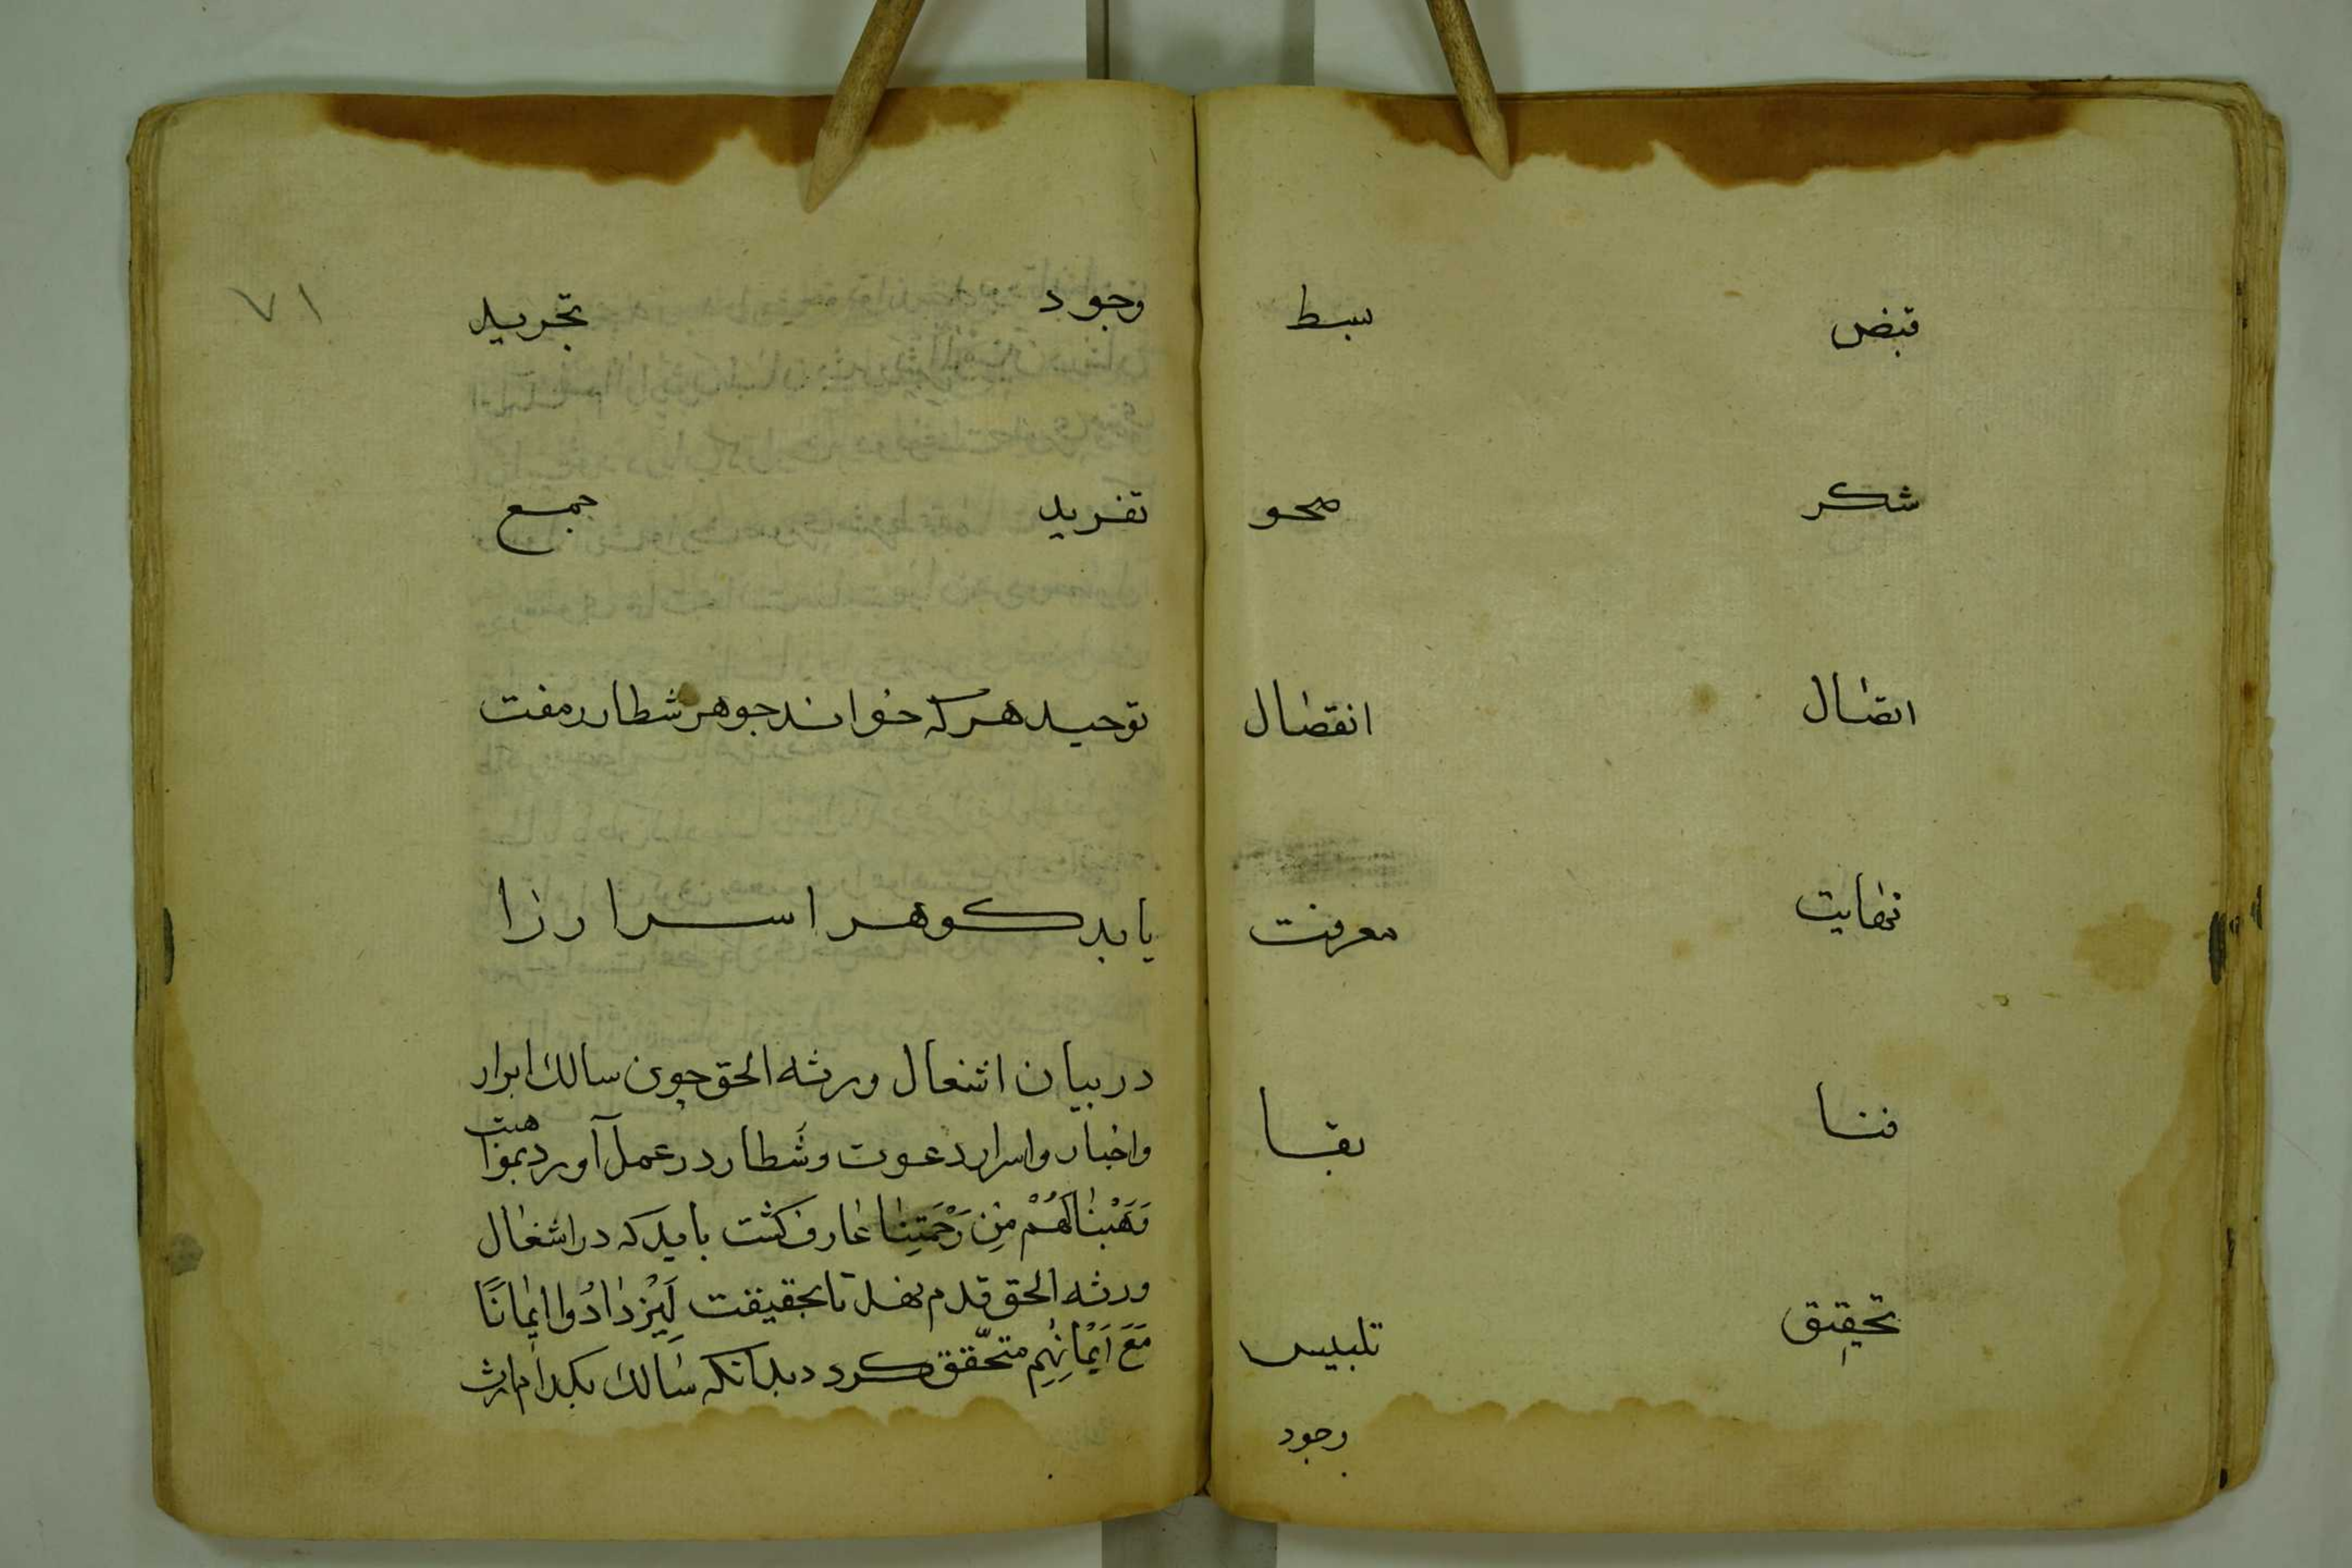 قبض بسط
شکر صحو
اتصال انفصال
نهایت معرفت
فنا بقا
تحقیق تلبیس
وجود
۷۱
وجود تجرید
تفرید جمع
توحید هرکه خواند جوهر شطار رمفت
یابد کوهر اسرار زا
در بیان اشغال ورثه الحق چون سالك ابرار
واخبار واسرار دعوت وشطار در عمل آورد بموا هبت
وَهَبْنَا لَهُمْ مِن رَحْمَتِنَا عارف کشت باید که در اشغال
ورثه الحق قدم نهد تا بحقیقت لِيَزْدَادُوا اِيمَانًا
مَعَ اِيْمَانِهِم متحقق کردد بدانکه سالك بکدام ارث